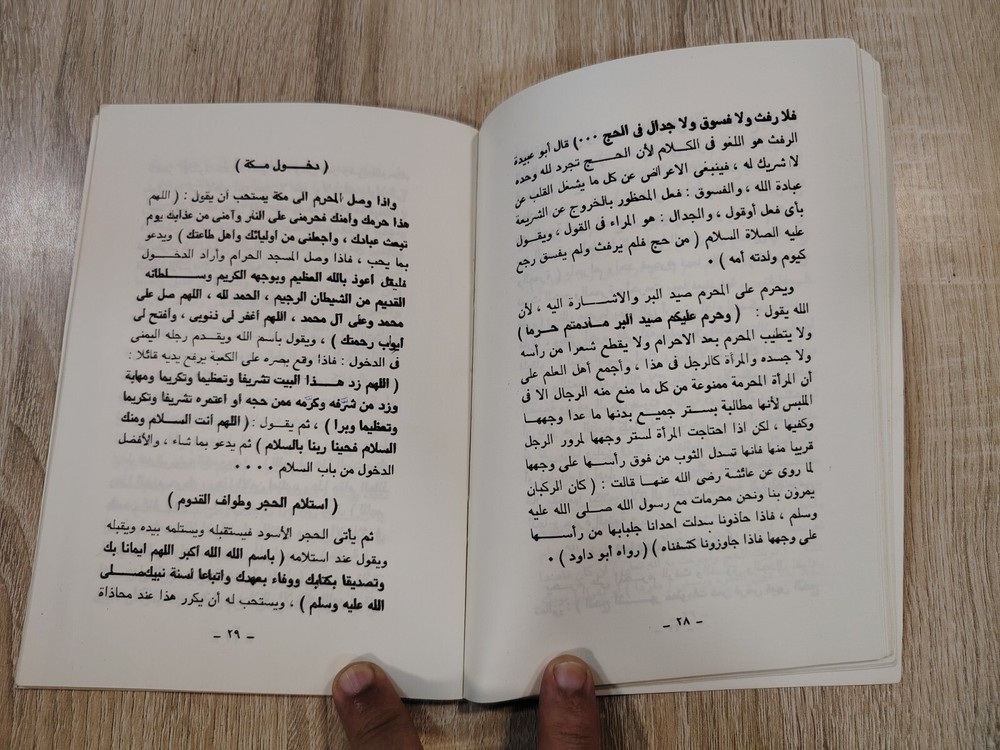 فلا رفث ولا فسوق ولا جدال فى الحج ٠٠٠) قال أبو عبيدة
الرفث هو اللغو فى الكلام لأن الحـــج تجرد لله وحده
لا شريك له ، فينبغى الاعراض عن كل ما يشغل القلب عن
عبادة الله ، والفسوق : فعل المحظور بالخروج عن الشريعة
بأى فعل أوقول ، والجدال : هو المراء فى القول ، ويقـــول
عليه الصلاة السلام ( من حج فلم يرفث ولم يفسق رجع
كيوم ولدته أمه ) ٠
ويحرم على المحرم صيد البر والاشـــارة اليه ، لأن
الله يقول : ( وحرم عليكم صيد البر مـادمتم حـرما )
ولا يتطيب المحرم بعد الاحرام ولا يقطع شعرا من رأسه
ولا جسده والمرأة كالرجل فى هذا ، وأجمع أهل العلم على
أن المرأة المحرمة ممنوعة من كل ما منع منه الرجال الا فى
الملبس لأنها مطالبة بستر جميـع بدنها ما عدا وجههـا
وكفيها ، لكن اذا احتاجت المرأة لستر وجهها لمرور الرجل
قريبا منها فانها تسدل الثوب من فوق رأســها على وجهها
لما روى عن عائشة رضى الله عنهـا قالت : ( كان الركبان
يمرون بنا ونحن محرمات مع رسول الله صلـى الله عليه
وسلم ، فاذا حاذونا سدلت احدانا جلبابها من رأســـها
على وجهها فاذا جاوزونا كشفناه ) ( رواه أبو داود ) ٠
ـ ٢٨ ـ
( دخـــول مكة )
واذا وصل المحرم الى مكة يستحب أن يقول : ( اللهم
هذا حرمك وأمنك فحرمنى على النار وآمنى من عذابك يوم
تبعث عبادك ، واجعلنى من أوليائك وأهل طاعتك ) ويدعو
بما يحب ، فاذا وصل المسجد الحرام وأراد الدخـــول
فليقل أعوذ بالله العظيم وبوجهه الكريم وســـلطانه
القديم من الشيطان الرجيم ، الحمد لله ، اللهم صل على
محمد وعلى آل محمد ، اللهم أغفر لى ذنوبى ، وأفتح لى
أبواب رحمتك ) ، ويقول باسم الله ويقـدم رجله اليمنى
فى الدخول : فاذا وقع بصره على الكعبة يرفع يديه قائلا :
( اللهم زد هـــذا البيت تشريفا وتعظيما وتكريما ومهابة
وزد من شرّفه وكرّمه ممن حجه أو اعتمره تشريفا وتكريما
وتعظيما وبرا ) ، ثم يقـــول : ( اللهم أنت الســلام ومنك
السلام فحينا ربنا بالسلام ) ثم يدعو بما شاء ، والأفضل
الدخول من باب السلام ٠٠٠٠
( استلام الحجر وطواف القدوم )
ثم يأتى الحجر الأسود فيستقبله ويستلمه بيده ويقبله
ويقول عند استلامه ( باسم الله الله أكبر اللهم ايمانا بك
وتصديقا بكتابك ووفاء بعهدك واتباعا لسنة نبيكصـــلى
الله عليه وسلم ) ، ويستحب له أن يكرر هذا عند محاذاة
ـ ٢٩ ـ